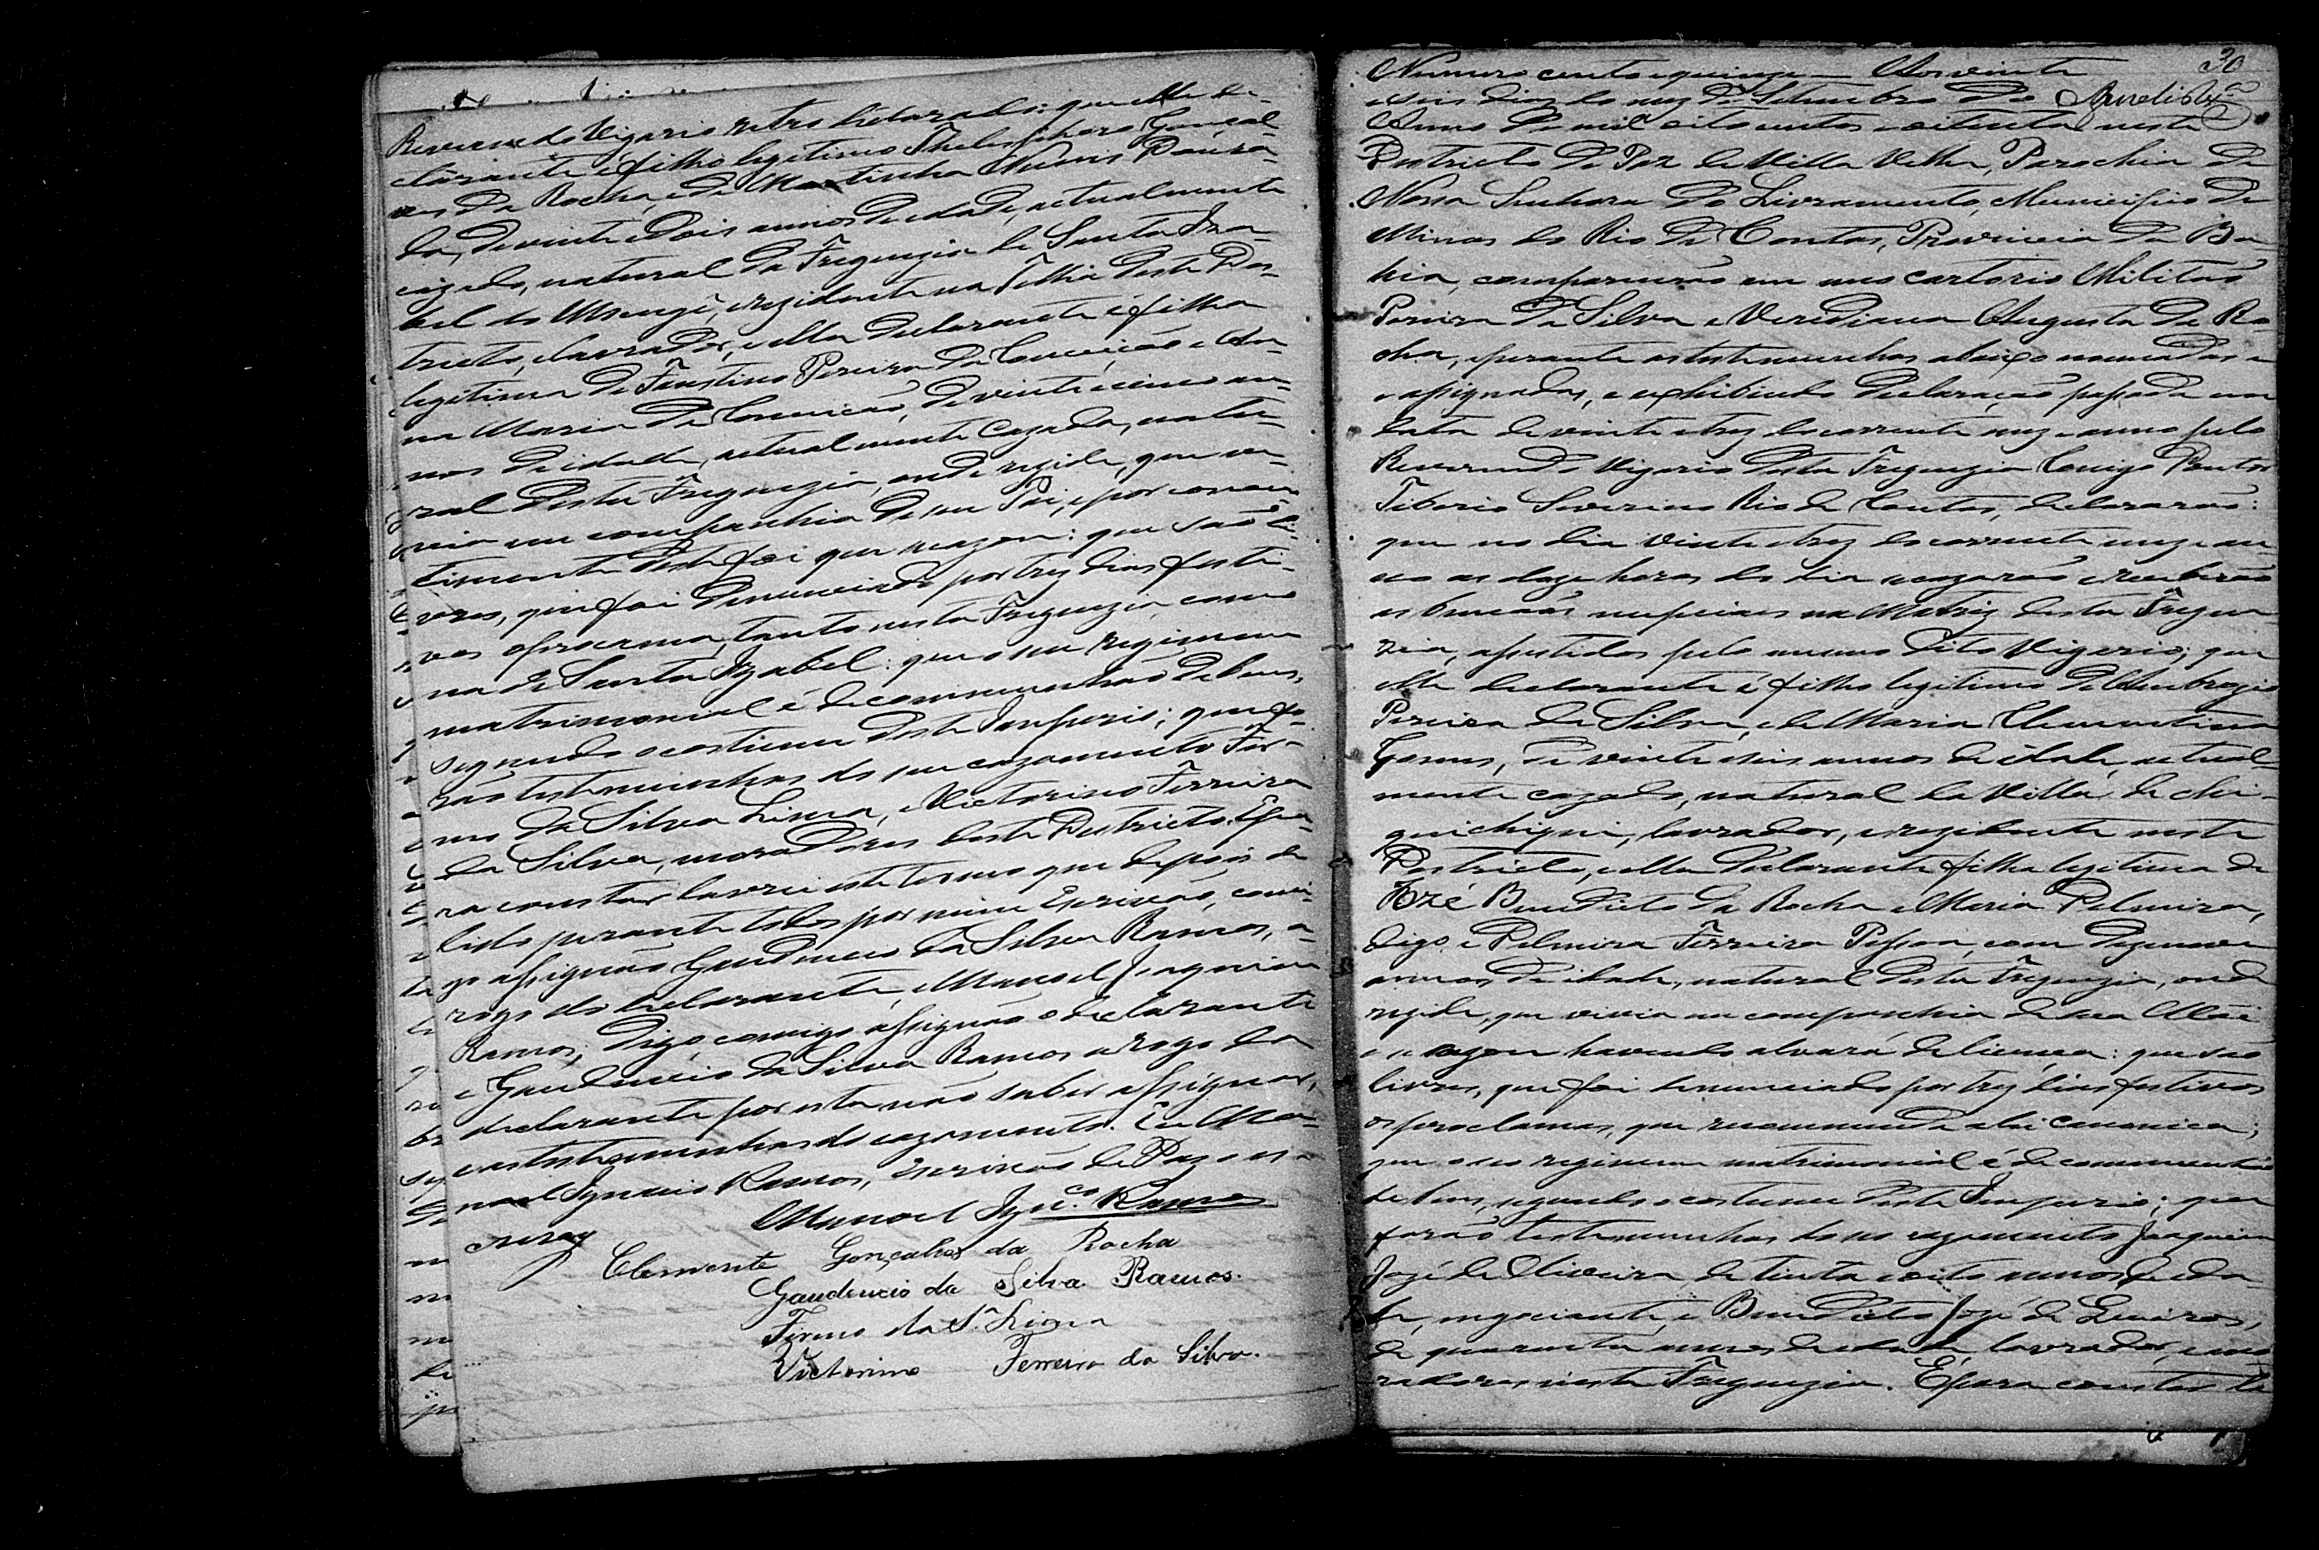 Reverendo Vigario retro declarado: que elle de-
clarante é filho legitimo Thelesphoro Gonçal-
ves da Rocha, e de Martinha Nunis
da, de vinte e dois annos de edade, actualmente
cazado, natural da Freguezia de Santa Iza-
bel do, e rezidente na Telha deste Des-
tricto, e lavrador, e ella declarante é filha
legitima de Faustino Pereira da Conceição e An-
na Maria da Conceição, de vinte e cinco an-
nos de idade, actualmente cazada, natu-
ral desta Freguezia, onde rezide, que vi-
via em companhia de seu Pai, e por consen-
timento deste foi que cazou: que são li-
vres, que foi denunciado por trez dias festi-
vos o proclama, tanto nesta Freguezia, como
na de Santa Izabel: que o seu regimem
matrimonial é de communhão de bens,
segundo o costume deste Imperio; que fo-
rão testemunhas do seu cazamento Fir-
mo da Silva Lima, e Victorino Ferreira
da Silva, moradores deste Destricto. E pa-
ra constar lavrei este termo que depois de
lido perante todos por mim Escrivão, comi-
go assignão Gaudencio da Silva Ramos, a
rogo do declarante, e Manoel Joaquim
Ramos, digo, comigo assignão o declarante
e Gaudencio da Silva Ramos a rogo da
declarante por esta não saber assignar,
e as testemunhas do cazamento. Eu Ma-
noel Ignacio Ramos, Escrivão de Paz o es-
crevy
Manoel Ign.co Ramos
Clemente Gonçalves da Rocha
Gaudencio da Silva Ramos.
Firmo da S.a Lima
Victorino Ferreira da Silva.
30
Numero cento e quinze — Aos vinte
e seis dias do mez de Setembro do
Anno de mil oito centos e oitenta neste
Destricto de Paz da Villa Velha, Parochia de
Nossa Senhora do Livramento, Municipio de
Minas do Rio de Contas, Provincia da Ba-
hia, comparecerão em meo cartorio Militão
Pereira da Silva e Veridiana Augusta da Ro-
cha, e perante as testemunhas abaixo nomeadas e
assignadas, e exhibindo declaração passada em
data de vinte e trez do corrente mez e anno pelo
Reverendo Vigario desta Freguezia Conego
Tiberio Severino Rio de Contas, declararão:
que no dia vinte e trez do corrente mez e an-
no as doze horas do dia se cazarão e receberão
as bençoas nupciaes na Matriz desta Fregue-
zia, assistidos pelo mesmo dito Vigario; que
elle declarante é filho legitimo de Ambrozio
Pereira da Silva, e de Maria Clementina
Gomes, de vinte e seis annos de idade, actual-
mente cazado, natural da Villa de Ma-
quichique, lavrador, e rezidente neste
Destricto, e ella declarante filha legitima de
José Benedicto da Rocha e Maria Pelmira,
digo e Pelmira Ferreira Pessoa, com dezenove
annos de idade, natural desta Freguezia, onde
rezide, que vivia em companhia de sua Mãe
e se cazou havendo alvará de licença: que são
livres, que foi denunciado por trez dias festivos
os proclamas, que recommenda a lei canonica;
que o seo regimem matrimonial é de communhão
de bens, segundo o costume deste Imperio; que
forão testemunhas do seo cazamento Joaquim
José de Oliveira, de trinta e oito annos de eda-
de, negociante, e Benedicto José de Queiroz,
de quarenta annos de edade, lavrador, e mo-
radores nesta Freguezia. E para constar la